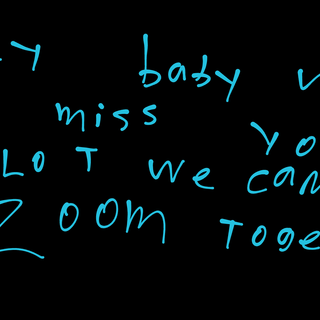 baby
miss
LOT we can
ZOOM Toge